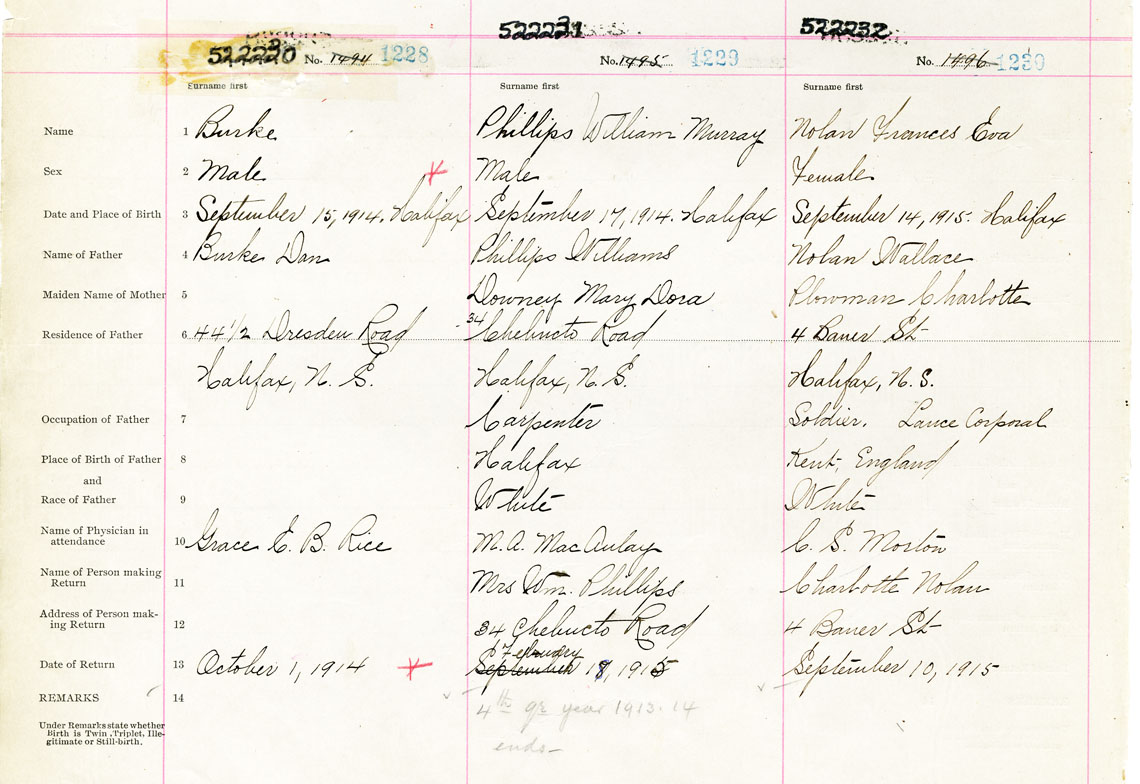 522230 No. 1494 1228
522231 No. 1495 1229
522232 No. 1496 1230
Surname first Surname first Surname first
Name 1 Burke Phillips William Murray Nolan Frances Eva
Sex 2 Male Male Female
Date and Place of Birth 3 September 15, 1914. Halifax September 17, 1914. Halifax September 14, 1915. Halifax
Name of Father 4 Burke Dan Phillips Williams Nolan Wallace
Maiden Name of Mother 5 Downey Mary Dora Plowman Charlotte
Residence of Father 6 44 1/2 Dresden Road 34 Chebucto Road 4 Bauer St
Halifax, N. S. Halifax, N. S. Halifax, N. S.
Occupation of Father 7 Carpenter Soldier. Lance Corporal
Place of Birth of Father 8 Halifax Kent, England
and
Race of Father 9 White White
Name of Physician in
attendance 10 Grace E. B. Rice M. A. MacAulay C. S. Morton
Name of Person making
Return 11 Mrs Wm. Phillips Charlotte Nolan
Address of Person mak-
ing Return 12 34 Chebucto Road 4 Bauer St
February
Date of Return 13 October 1, 1914 September 18, 1915 September 10, 1915
REMARKS 14 4th qr year 1913.14
ends-
Under Remarks state whether
Birth is Twin, Triplet, Ille-
gitimate or Still-birth.